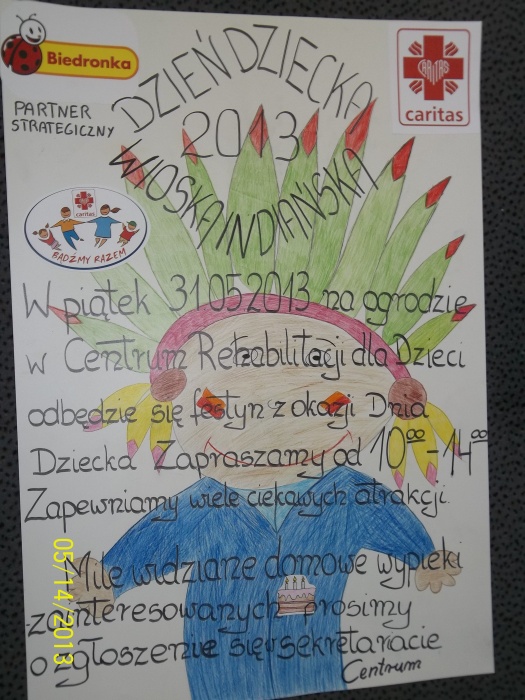 Biedronka
PARTNER
STRATEGICZNY
DZIEŃ DZIECKA
2013
WIOSKA INDIAŃSKA
CARITAS
caritas
caritas
BĄDŹMY RAZEM
W piątek 31 05 2013 na ogrodzie
w Centrum Rehabilitacji dla Dzieci
odbędzie się festyn z okazji Dnia
Dziecka Zapraszamy od 10 00 - 14 00
Zapewniamy wiele ciekawych atrakcji.
Mile widziane domowe wypieki
zainteresowanych prosimy
o zgłoszenie się w sekretariacie
Centrum
05/14/2013